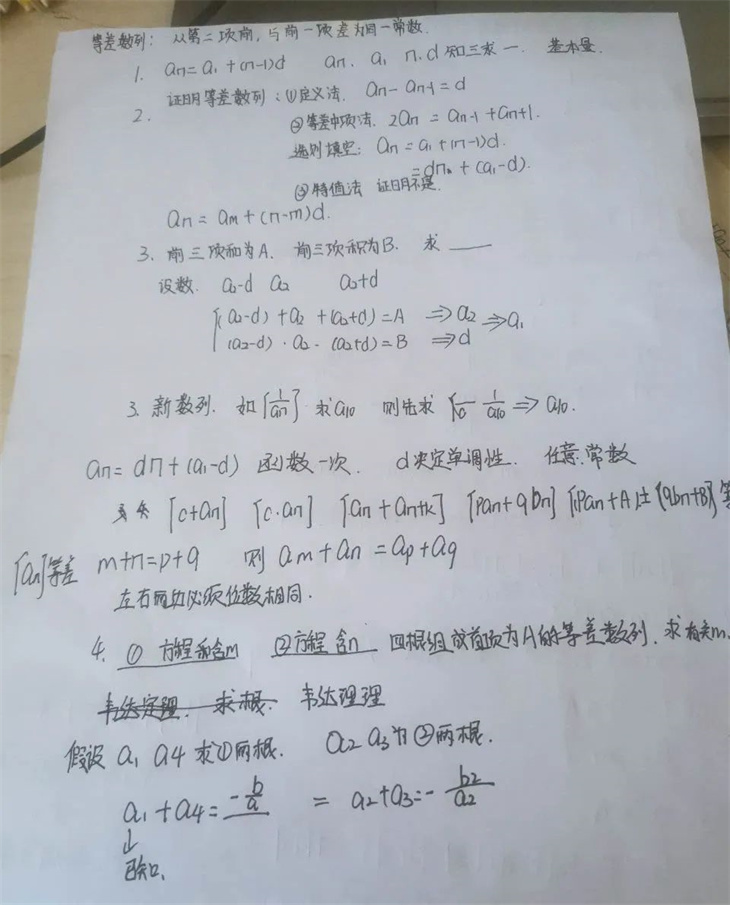 等差数列: 从第二项前, 与前一项差为同一常数.
1. an = a1 + (n-1)d an. a1 n. d 知三求一. 基本量.
2. 证明等差数列: ①定义法. an - an-1 = d
②等差中项法. 2an = an-1 + an+1.
选则填空: an = a1 + (n-1)d.
= dn + (a1-d).
③特值法 证明不是.
an = am + (n-m)d.
3. 前三项和为A. 前三项积为B. 求 ____
设数. a2-d a2 a2+d
{(a2-d) + a2 + (a2+d) = A ⇒ a2 ⇒ a1
(a2-d) · a2 · (a2+d) = B ⇒ d
3. 新数列. 如{1/an} 求a10 则先求 1/a10 ⇒ a10.
an = dn + (a1-d) 函数一次. d决定单调性. 任意.常数
{c+an} {c·an} {an + an+k} {pan + qbn} {(pan+A)± (qbn+B)} 等
{an}等差 m+n=p+q 则 am + an = ap + aq
左右两边必须位数相同.
4. ① 方程含m ②方程 含n 四根组成首项为A的等差数列. 求 m.
韦达定理. 求根. 韦达理理
假设 a1 a4 求①两根. a2 a3 为②两根.
a1 + a4 = -b/a = a2 + a3 = - b2/a2
↓
已知.